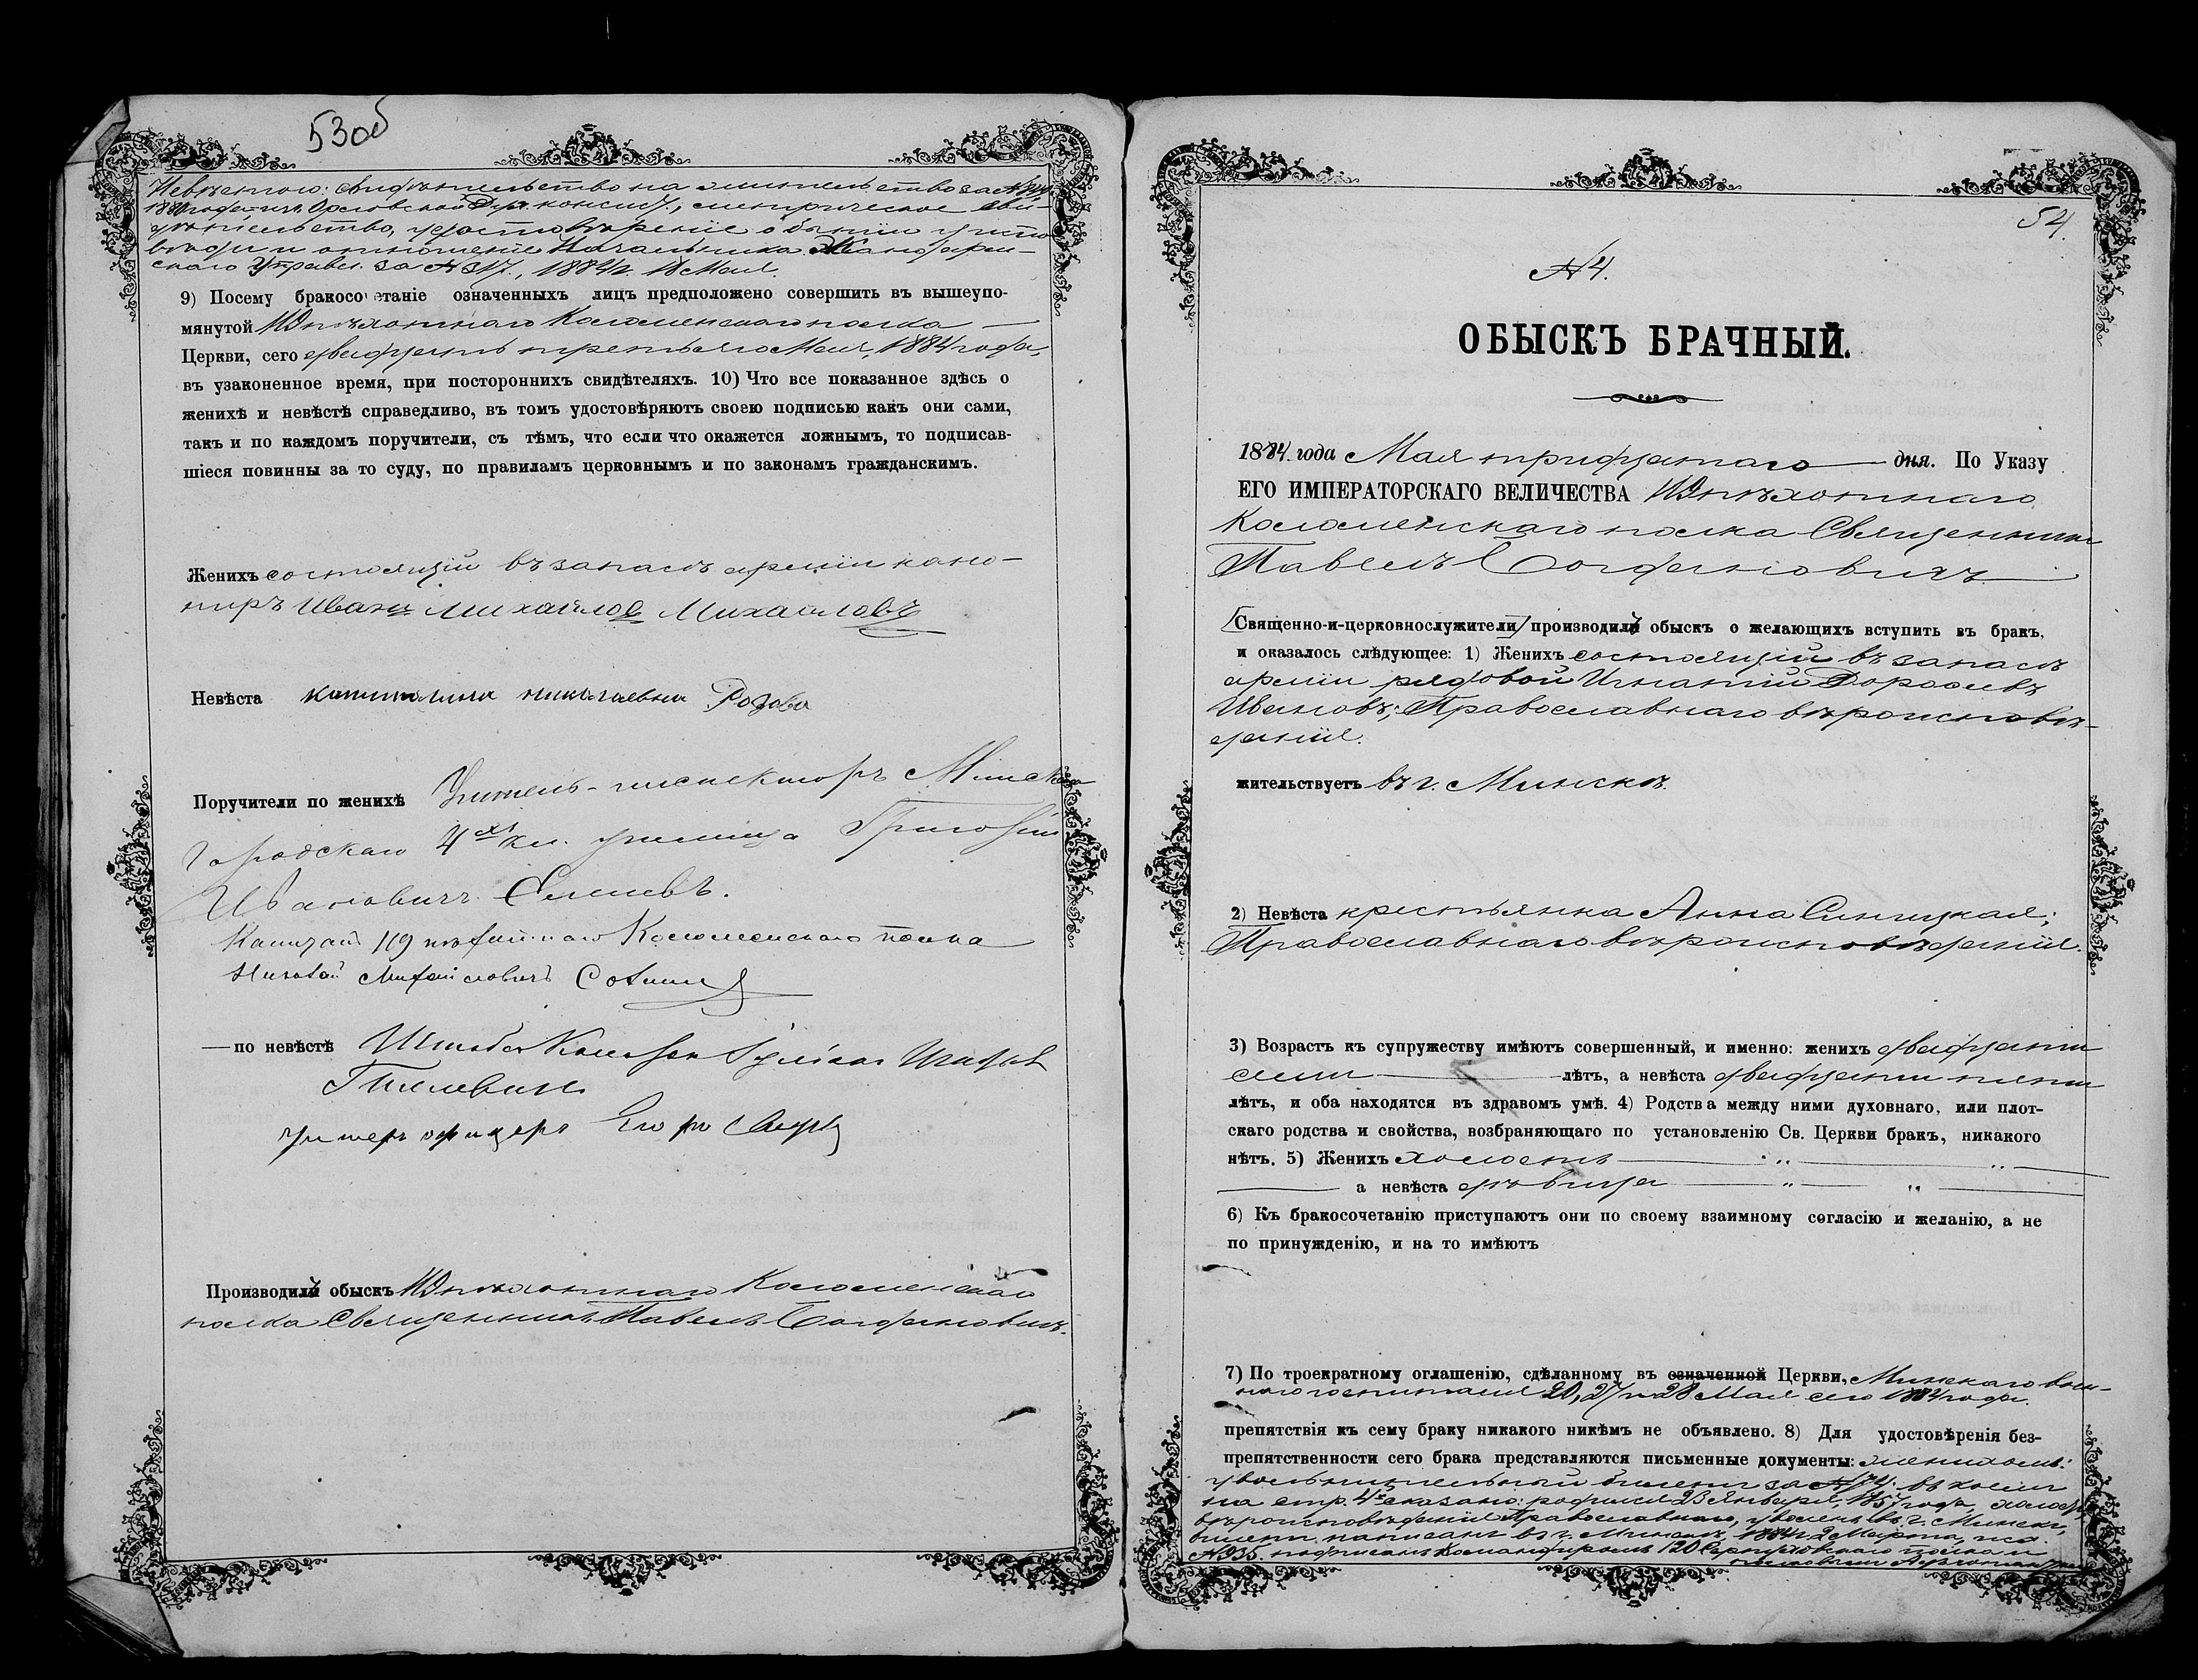 53об
Невѣстою: свидѣтельство на жительство за №
1880 года изъ Орловской Дух. консист., метрическое сви-
дѣтельство, удостовѣреніе о бытіи у испо-
вѣди и отношеніе Начальника Жандарм-
скаго Управл. за № 317, 1884 г. 18 Мая.
9) Посему бракосочетаніе означенныхъ лицъ предположено совершить въ вышеупо-
мянутой 119 пѣхотнаго Коломенскаго полка
Церкви, сего двадцать третьяго Мая, 1884 года,
въ узаконенное время, при постороннихъ свидѣтеляхъ. 10) Что все показанное здѣсь о
женихѣ и невѣстѣ справедливо, въ томъ удостовѣряютъ своею подписью какъ они сами,
такъ и по каждомъ поручители, съ тѣмъ, что если что окажется ложнымъ, то подписав-
шіеся повинны за то суду, по правиламъ церковнымъ и по законамъ гражданскимъ.
Женихъ состоящій въ запасѣ арміи кано-
ниръ Иванъ Михайловъ Михайловъ
Невѣста капиталина николаевна Розова
Поручители по женихѣ Учитель-инспекторъ Минскаго
Городскаго 4хъ кл. училища Григорій
Ивановичъ
Капитанъ 119 пѣхотнаго Коломенскаго полка
Николай Михайловичъ
— по невѣстѣ
унтеръ офицеръ Егоръ
Производилъ обыскъ 119 пѣхотнаго Коломенскаго
полка Священникъ Павелъ Богдановичъ.
54.
№ 4.
ОБЫСКЪ БРАЧНЫЙ.
1884. года Мая тридцатаго дня. По Указу
ЕГО ИМПЕРАТОРСКАГО ВЕЛИЧЕСТВА 119 пѣхотнаго
Коломенскаго полка Священникъ
Павелъ Богдановичъ
Священно-и-церковнослужители производилъ обыскъ о желающихъ вступить въ бракъ,
и оказалось слѣдующее: 1) Женихъ состоящій въ запасѣ
арміи рядовой Игнатій Дорофеевъ
Ивановъ; Православнаго вѣроисповѣ-
данія.
жительствуетъ въ г. Минскѣ.
2) Невѣста крестьянка Анна Синицкая;
Православнаго вѣроисповѣданія.
3) Возрастъ къ супружеству имѣютъ совершенный, и именно: женихъ двадцати
семи лѣтъ, а невѣста двадцати пяти
лѣтъ, и оба находятся въ здравомъ умѣ. 4) Родства между ними духовнаго, или плот-
скаго родства и свойства, возбраняющаго по установленію Св. Церкви бракъ, никакого
нѣтъ. 5) Женихъ холостъ
а невѣста дѣвица
6) Къ бракосочетанію приступаютъ они по своему взаимному согласію и желанію, а не
по принужденію, и на то имѣютъ
7) По троекратному оглашенію, сдѣланному въ означенной Церкви, Минскаго воен-
наго госпиталя 20, 27 и 28 Мая сего 1884 года.
препятствія къ сему браку никакого никѣмъ не объявлено. 8) Для удостовѣренія без-
препятственности сего брака представляются письменные документы: женихомъ:
увольнительный билетъ за № 74: въ коемъ
на стр. 4й сказано: родился 23 Января, 1857 года, холостъ,
вѣроисповѣданія Православнаго, уволенъ въ г. Минскъ,
билетъ написанъ въ г. Минскѣ, 1884 г. 2 Марта,
№ 935. подписанъ Командиромъ 120 Серпуховскаго полка и
полковымъ Адъютантомъ